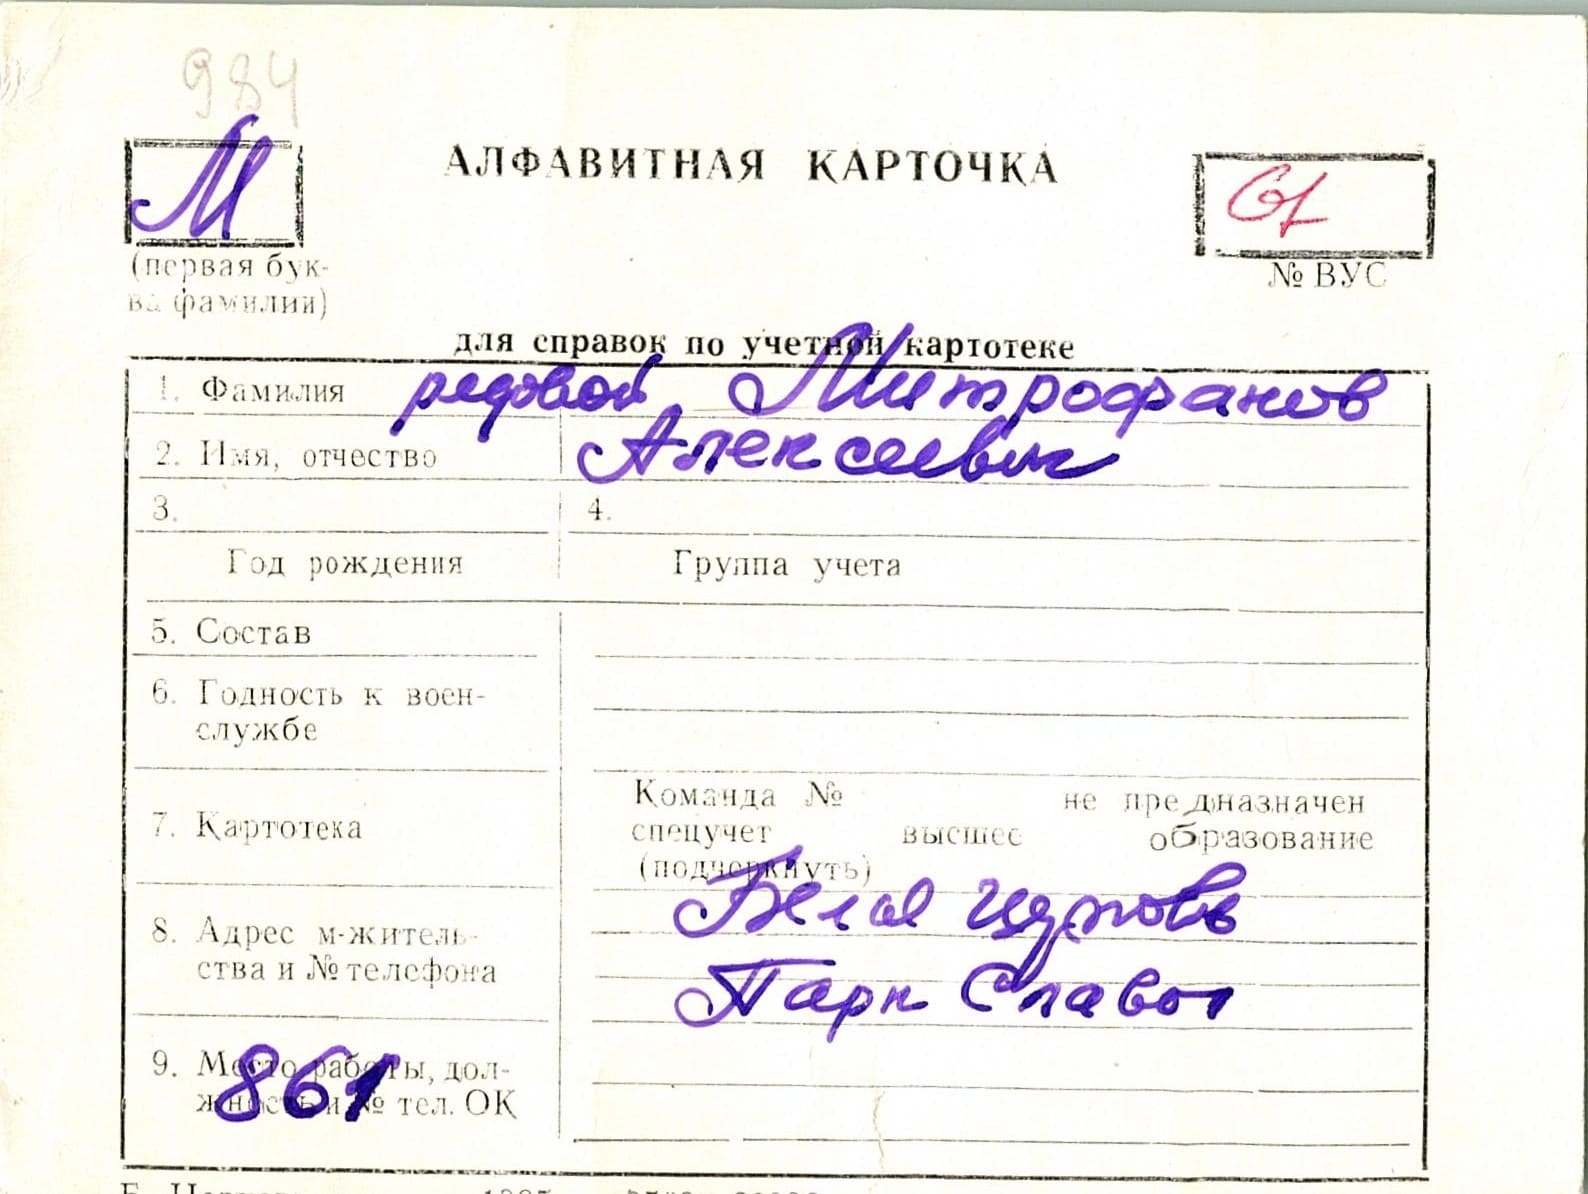 984
М
АЛФАВИТНАЯ КАРТОЧКА
(первая бук-
ва фамилии)
№ ВУС
для справок по учетной картотеке
1. Фамилия рядовой Митрофанов
2. Имя, отчество Алексеевич
3. 4.
Год рождения Группа учета
5. Состав
6. Годность к воен-
службе
7. Картотека
Команда № не предназначен
спецучет высшее образование
(подчеркнуть)
8. Адрес м-житель-
ства и № телефона
Белая Церковь
Парк Славы
9. Место работы, дол-
жность и № тел. ОК
861